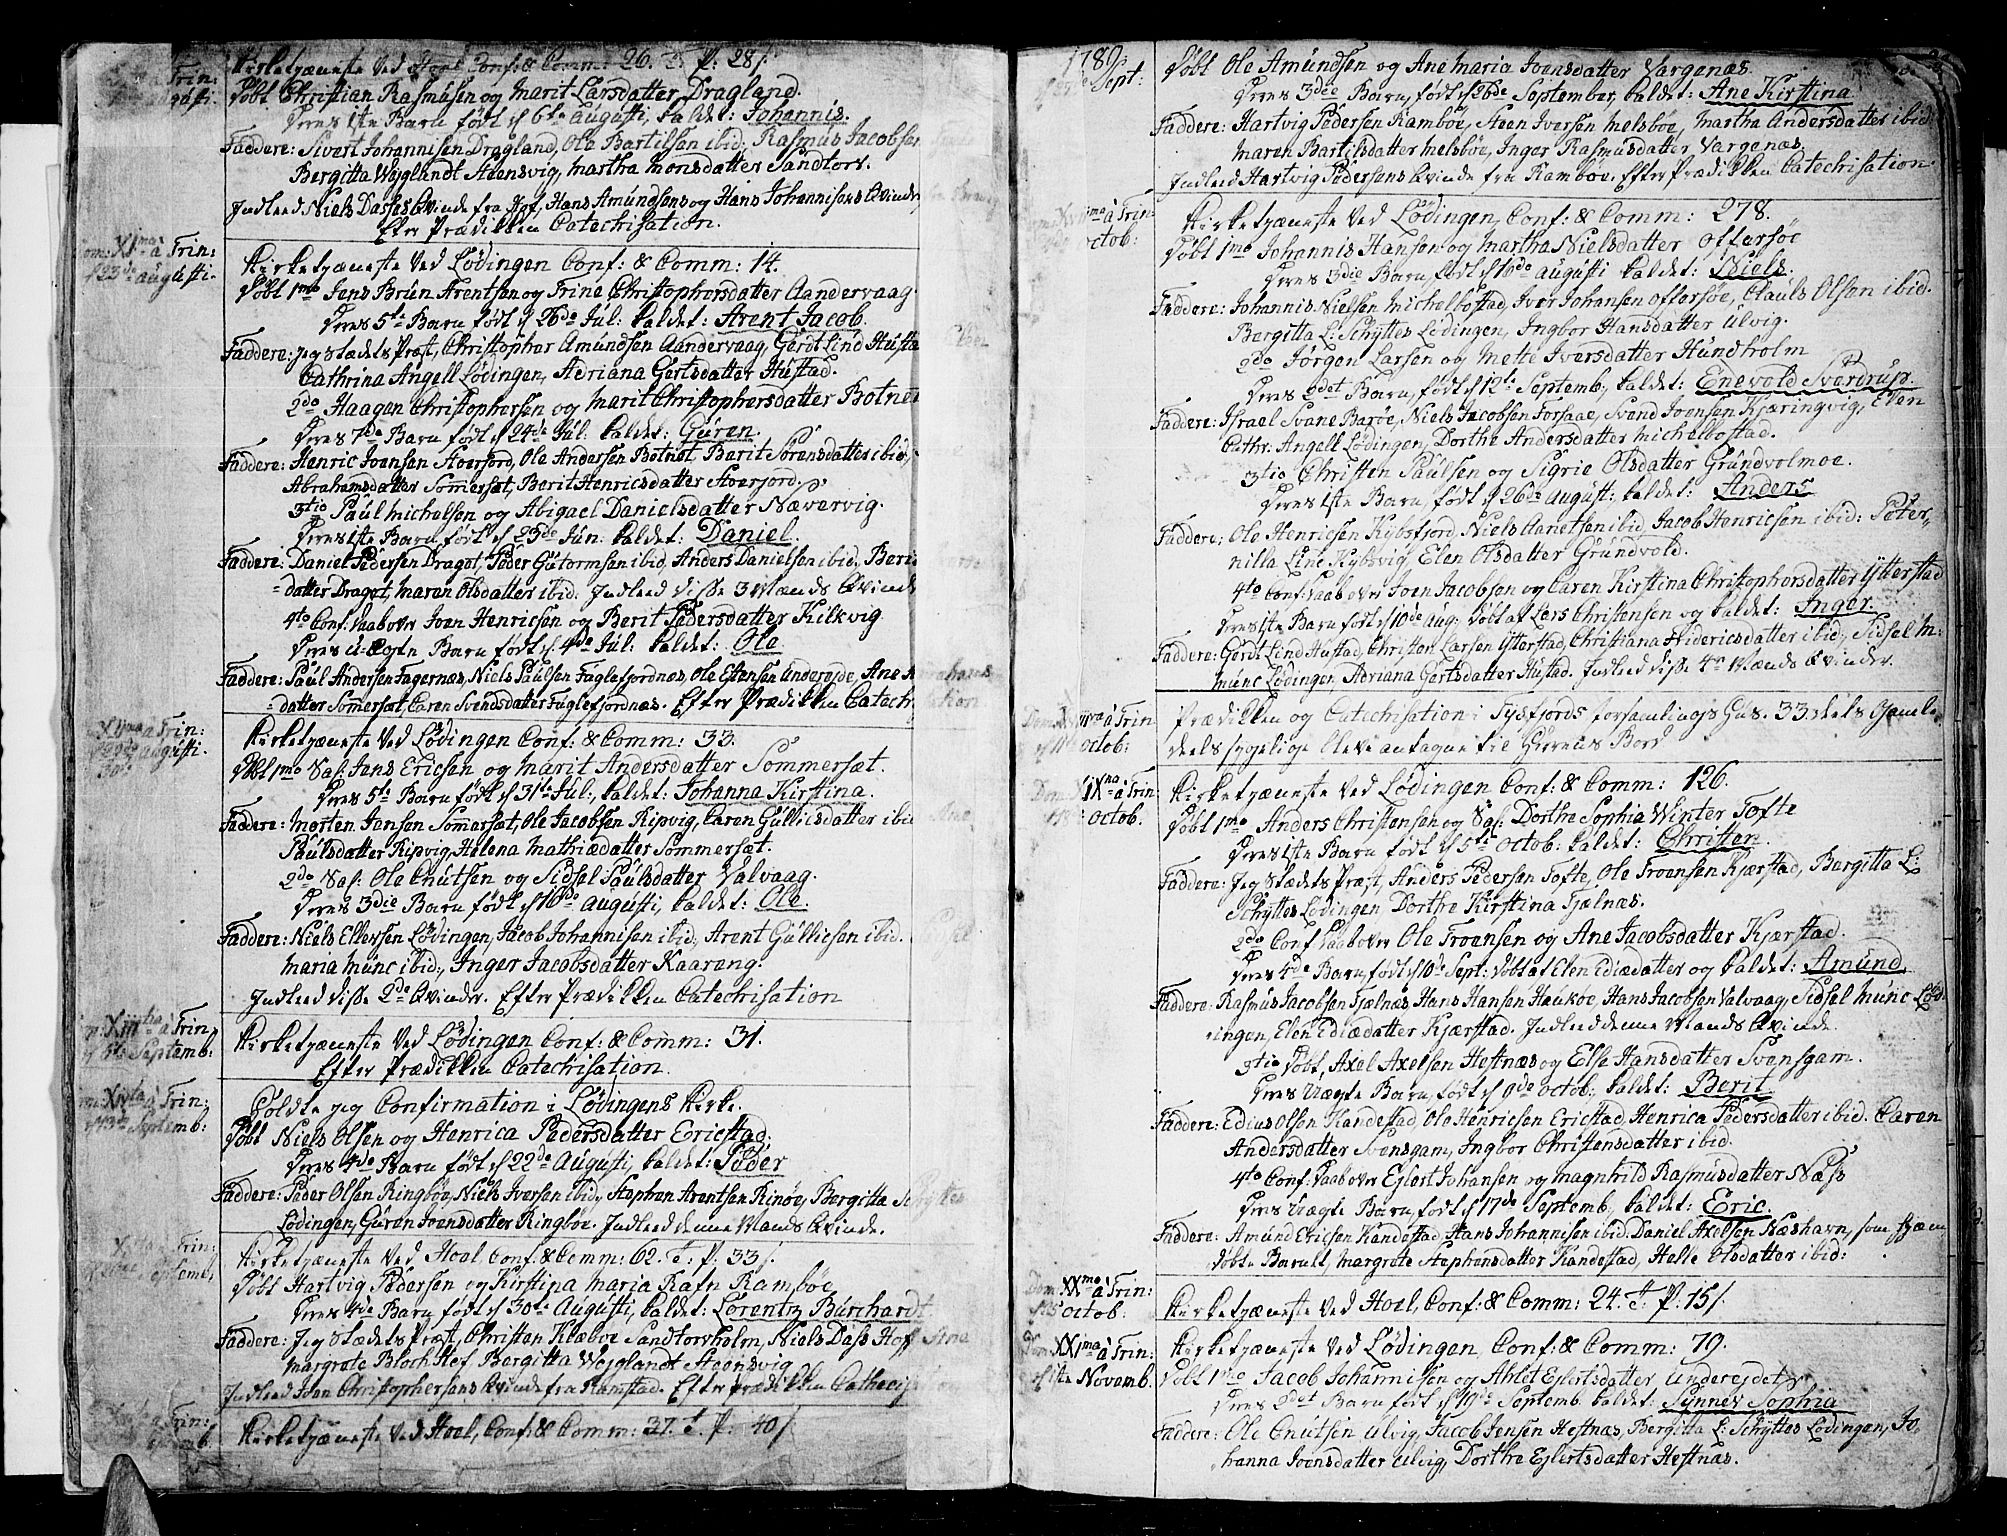 Kirketjæneste ved Hoel Conf: & Comm: 26. T. P. 28/.
Trin:
gusti.
Døbt Christian Rasmusen og Marit Larsdatter Dragland.
Deres 1ste Barn født d 6te Augusti, kaldet: Johannis.
Faddere: Sivert Johannisen Dragland, Ole Bartilsen ibid, Rasmus Jacobsen
Bergitta Weyglandt Steensvig, Martha Monsdatter Sandtorv.
Indleed Niels Dasses Qvinde fra Hof, Hans Amundsens og Hans Johannisens Qvinder
Efter Prædikken Catechisation.
om: XIma a Trin:
d 23de Augusti.
Kirketjæneste ved Lødingen Conf: & Comm: 14.
Døbt 1mo Jens Brun Arentsen og Trine Christophersdatter Aandervaag
Deres 5te Barn født d 26de Jul: kaldet: Arent Jacob.
Faddere: Jeg Stædets Præst, Christopher Amundsen Aandervaag, Gerdt Lind Hustad
Cathrina Angell Lødingen, Adriana Gertsdatter Hustad.
2do Haagen Christophersen og Marit Christophersdatter Botnet
Deres 7de Barn født d 24de Jul: kaldet: Guren.
Faddere: Henric Joensen Stoerfjord, Ole Andersen Botnet, Berit Sørensdatter ibid,
Abrahamsdatter Somersæt, Berit Henricsdatter Stoerfjord.
3tio Paul Michelsen og Abigael Danielsdatter Næverviig.
Deres 1ste Barn født d 23de Jun: kaldet: Daniel.
Faddere: Daniel Pedersen Draget, Peder Gutormsen ibid, Anders Danielsen ibid, Berit
datter Draget, Maren Olsdatter ibid. Indleed disse 3 Mænds Qvinder
4to Conf: Daab over Joen Henricsen og Berit Pedersdatter Kilkvig
Deres u-ægte Barn født d 4de Jul: kaldet: Ole
Faddere: Paul Andersen Fagernæs, Niels Paulsen Faglefjordnæs, Ole Estensen Undereide, Ane
datter Somersæt, Caren Svendsdatter Fuglefjordnæs. Efter Prædikken Catechisation
XIIma a Trin:
d 30de Augusti.
Kirketjæneste ved Lødingen Conf: & Comm: 33.
Døbt 1mo Sal: Jens Ericsen og Marit Andersdatter Sommersæt.
Deres 5te Barn født d 31te Jul:, kaldet: Johanna Kirstina.
Faddere: Morten Jensen Somersæt, Ole Jacobsen Ripvig, Caren Gullicsdatter ibid Ane
Paulsdatter Ripvig, Helena Mathiædatter Sommersæt.
2do Sal: Ole Cnutsen og Sidsel Paulsdatter Valvaag.
Deres 3die Barn født d 16de Augusti, kaldet: Ole.
Faddere: Niels Ellevsen Lødingen, Jacob Johannisen ibid, Arent Gullicsen ibid.
Maria Munc ibid, Inger Jacobsdatter Kaareng.
Indleed disse 2de Qvinder. Efter Prædikken Catechisation
XIIItia a Trin
d 6te Septemb:
Kirketjæneste ved Lødingen Conf: & Comm: 31.
Efter Prædikken Catechisation.
XIVta a Trin:
d 13de Septemb:
Holdte jeg Confirmation i Lødingens Kirke.
Døbt Niels Olsen og Henrica Pedersdatter Ericstad.
Deres 4de Barn født d 22de Augusti, kaldet: Peder
Faddere: Peder Olsen Ringbøe, Niels Iversen ibid, Stephen Arentsen Rinøe, Bergitta Schyttes
Lødingen, Guren Ivensdatter Ringbøe. Indleed denne Mands Qvinde.
Trin:
Septemb:
Kirketjæneste ved Hoel Conf: & Comm: 62. T: P: 33/.
Døbt Hartvig Pedersen og Kirstina Maria Rafn Ramboe
Deres 4de Barn født d 30te Augusti, kaldet: Lorentz Burchardt
Faddere: Jeg Stædets Præst, Christen Klæboe Sandtorvholm, Niels Dass Hof Ane
Margrete Bloch Hof, Bergitta Weyglandt Steensvig
Indleed Joen Christophersens Qvinde fra Ramstad. Efter Prædikken Catechisation
Trin:
Kirketjæneste ved Hoel, Conf: & Comm: 37. T. P: 40/
1789
Sept:
Døbt Ole Amundsen og Ane Maria Ivensdatter Vargenæs.
Deres 3die Barn, født d 26de September, kaldet: Ane Kirstina
Faddere: Hartvig Pedersen Ramboe, Steen Iversen Melsbøe, Martha Andersdatter ibid:
Maren Bartilsdatter Melsbøe, Inger Rasmusdatter Vargenæs.
Indleed Hartvig Pedersens Qvinde fra Ramboe. Efter Prædikken Catechisation.
a Trin:
octob:
Kirketjæneste ved Lødingen, Conf: & Comm: 278.
Døbt 1mo Johannis Hansen og Martha Nielsdatter Offersøe
Deres 3die Barn, født d 16de Augusti kaldet: Niels.
Faddere: Johannis Nielsen Michelbostad, Iver Johansen Offersøe, Clauls Olsen ibid.
Bergitta L: Schyttes Lødingen, Ingbor Hansdatter Ulvig.
2do Jørgen Larsen og Mette Iversdatter Hundholm
Deres 2det Barn, født d 12te Septemb, kaldet: Enevold Sverdrup.
Faddere: Israel Svane Barøe, Niels Jacobsen Forsaae, Svend Joensen Kjæringvig, Elen
Cathr: Angell Lødingen, Dorthe Andersdatter Michelbostad.
3tio Christen Paulsen og Sigrie Olsdatter Grundvolmoe.
Deres 1ste Barn, født d 26de Augusti: kaldet: Anders
Faddere: Ole Henricsen Kybsfjord, Niels Danetsen ibid, Jacob Henricsen ibid: Peter-
nilla Line Kybvig, Elen Olsdatter Grundvold.
4to Conf: Daab over Joen Jacobsen og Caren Kirstina Christophersdatter Ytterstad
Deres 1ste Barn født d 10de Aug: døbt af Lars Christensen og kaldet: Inger.
Faddere: Gerdt Lind Hustad, Christen Larsen Ytterstad, Christiana Didericsdatter ibid, Sidsel M:
Munc Lødingen, Adriana Gertsdatter Hustad. Indleed disse 4re Mænds Qvinder.
Dom: XVIIIva a Trin
d 11te octob:
Prædikken og Catechisation i Tysfjords Forsamlings Huus. 33 deels Gamle,
deels sygelige bleve antagne til Herrens Bord
Dom: XIXna a Trin
d 18de octob.
Kirketjæneste ved Lødingen Conf: & Comm: 126.
Døbt 1mo Anders Christensen og Sal: Dorthe Sophia Winter Tofte
Deres 1ste Barn født d 5te octob: kaldet: Christen.
Faddere: Jeg Stædets Præst, Anders Pedersen Tofte, Ole Troensen Kjærstad, Bergitta L:
Schyttes Lødingen, Dorthe Kirstina Fjælnæs.
2do Conf: Daab over Ole Troensen og Ane Jacobsdatter Kjærstad.
Deres 4de Barn, født d 10de Sept: døbt af Elen Ediædatter og kaldet: Amund.
Faddere: Rasmus Jacobsen Fjælnæs, Hans Hansen Haukøe, Hans Jacobsen Valvaag, Sidsel Munc Lød-
ingen, Elen Ediædatter Kjærstad. Indleed denne Mands Qvinde.
3tio Døbt, Axel Axelsen Hestnæs og Else Hansdatter Svensgam.
Deres Uægte Barn, født d 9de octob:, kaldet: Berit.
Faddere: Edius Olsen Kandestad, Ole Henricsen Ericstad, Henrica Pedersdatter ibid. Caren
Andersdatter Svensgam, Ingbor Christensdatter ibid.
4to Conf: Daab over Eylert Johansen og Magnhild Rasmusdatter Næss
Deres Uægte Barn, født d 17de Septemb, kaldet: Eric.
Faddere: Amund Ericsen Kandestad, Hans Johannisen ibid. Daniel Axelsen Næshavn, som hjem
døbte Barnet, Margrete Stephensdatter Kandestad, Helle Olsdatter ibid:
Dom: XXma a Trin:
d 25 octob:
Kirketjæneste ved Hoel, Conf: & Comm: 24. T. P. 15/.
Dom: XXIma a Trin:
d 1ste Novemb.
Kirketjæneste ved Lødingen, Conf: & Comm: 79.
Døbt 1mo Jacob Johannisen og Ahlet Eylertsdatter Undereydet
Deres 2det Barn født d 19de Septemb kaldet: Synnev Sophia
Faddere: Ole Cnutsen Ulvig, Jacob Jensen Hestnæs, Bergitta L: Schyttes Lødingen, Jo-
hanna Ivensdatter Ulvig, Dorthe Eylertsdatter Hestnæs.